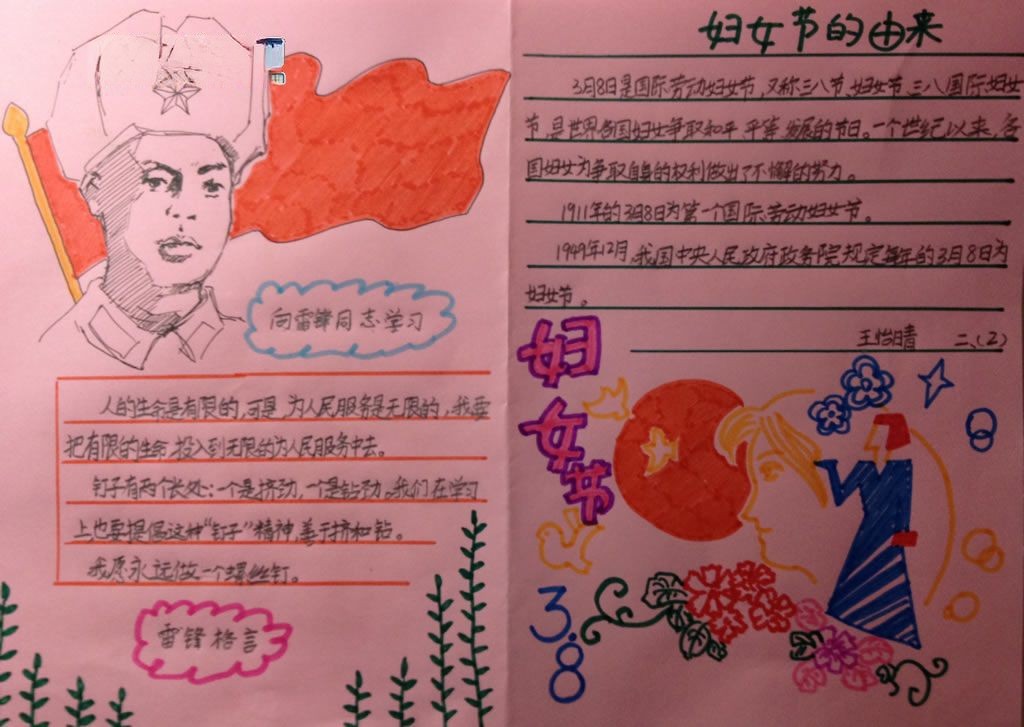 向雷锋同志学习
人的生命是有限的,可是,为人民服务是无限的,我要
把有限的生命,投入到无限的为人民服务中去。
钉子有两个长处:一个是挤劲,一个是钻劲。我们在学习
上也要提倡这种“钉子”精神,善于挤和钻。
我愿永远做一个螺丝钉。
雷锋格言
妇女节的由来
3月8日是国际劳动妇女节,又称三八节、妇女节、三八国际妇女
节,是世界各国妇女争取和平、平等、发展的节日。一个世纪以来,各
国妇女为争取自身的权利做出了不懈的努力。
1911年的3月8日为第一个国际劳动妇女节。
1949年12月,我国中央人民政府政务院规定每年的3月8日为
妇女节。
王怡晴 二、(2)
妇女节
3.8